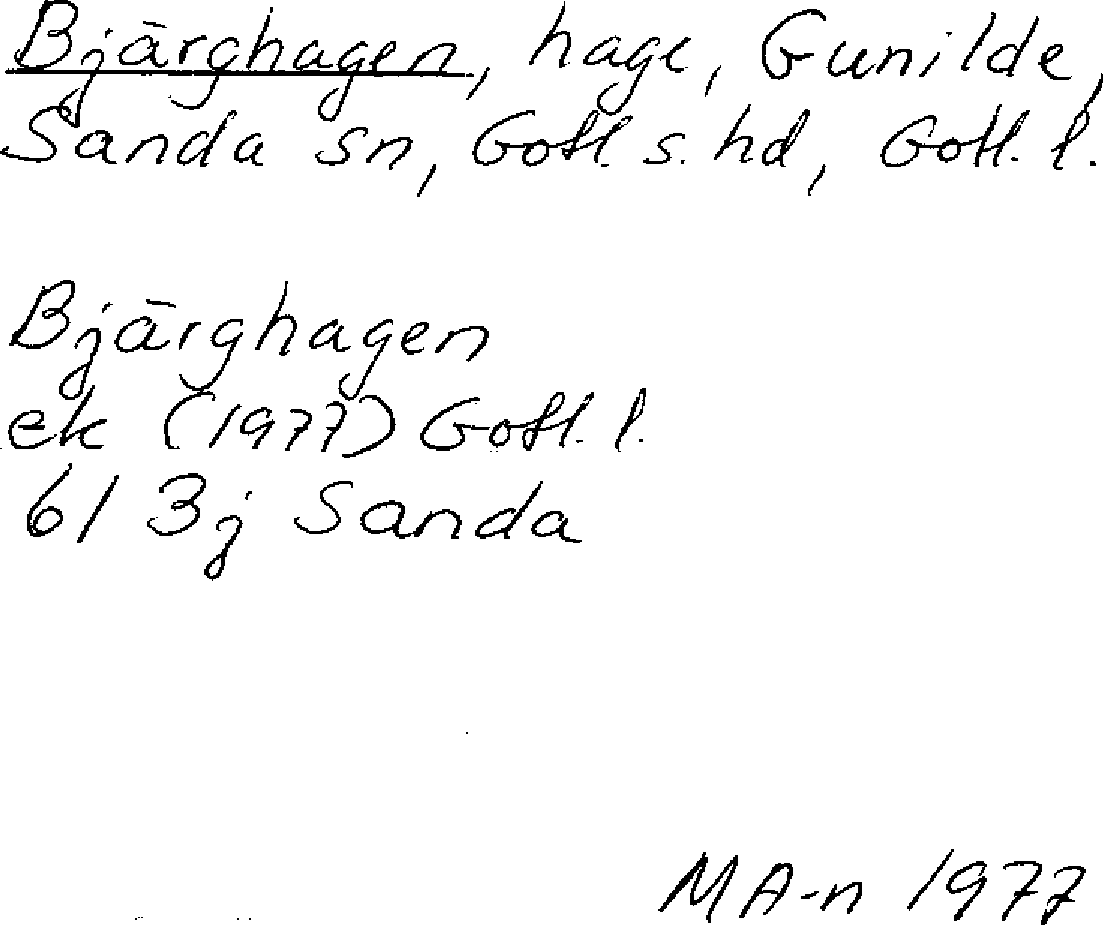 Bjärghagen, hage, Gunilde,
Sanda sn, Gotl. s. hd, Gotl. l.
Bjärghagen
ek (1977) Gotl. l.
6I 3j Sanda
MA-n 1977